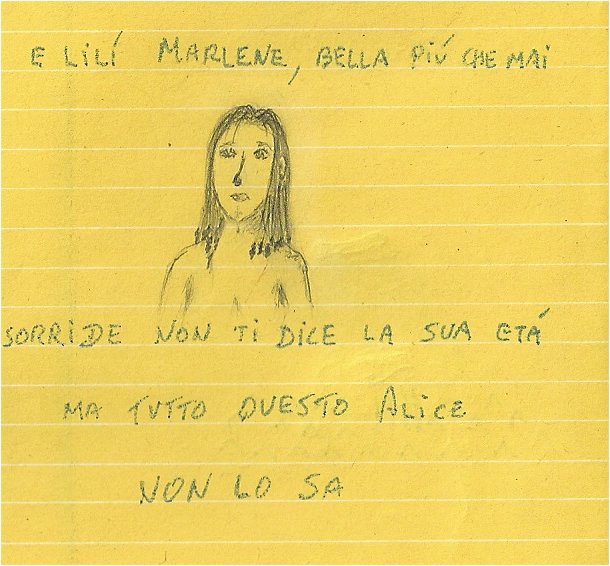 E LILÍ MARLENE, BELLA PIÚ CHE MAI
SORRIDE NON TI DICE LA SUA ETÁ
MA TUTTO QUESTO ALICE
NON LO SA